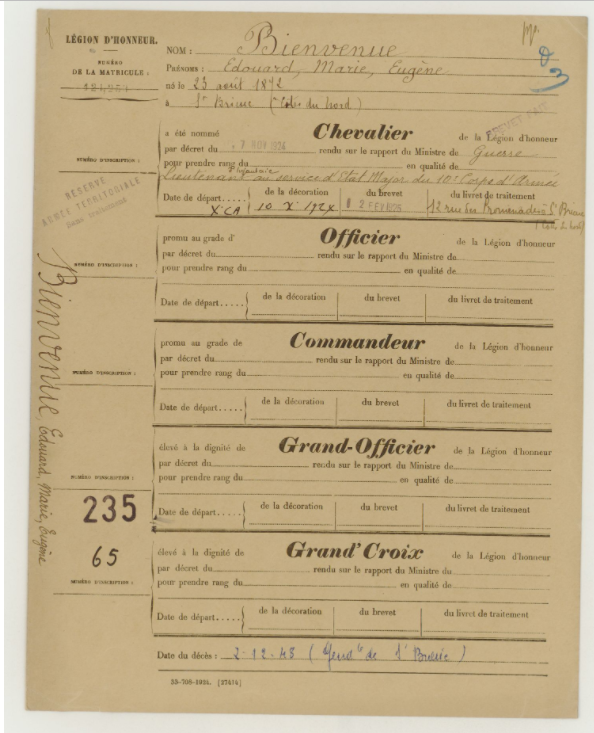 LÉGION D'HONNEUR.
NUMÉRO
DE LA MATRICULE :
NOM : Bienvenue
PRÉNOMS : Edouard, Marie, Eugène
né le 23 août 1872
à St Brieuc (Côtes du Nord)
a été nommé Chevalier de la Légion d'honneur
par décret du 7 NOV 1924 rendu sur le rapport du Ministre de Guerre
NUMÉRO D'INSCRIPTION :
pour prendre rang du en qualité de
Lieutenant d'Infanterie au service d'État Major du 10e Corps d'Armée
RÉSERVE
ARMÉE TERRITORIALE
Sans traitement
Date de départ..... de la décoration du brevet du livret de traitement
X CA 12 rue des Promenades St Brieuc
promu au grade d' Officier de la Légion d'honneur
par décret du rendu sur le rapport du Ministre de
NUMÉRO D'INSCRIPTION :
pour prendre rang du en qualité de
Date de départ..... de la décoration du brevet du livret de traitement
promu au grade de Commandeur de la Légion d'honneur
par décret du rendu sur le rapport du Ministre de
NUMÉRO D'INSCRIPTION :
pour prendre rang du en qualité de
Date de départ..... de la décoration du brevet du livret de traitement
élevé à la dignité de Grand-Officier de la Légion d'honneur
par décret du rendu sur le rapport du Ministre de
NUMÉRO D'INSCRIPTION :
pour prendre rang du en qualité de
235
Date de départ..... de la décoration du brevet du livret de traitement
65
élevé à la dignité de Grand'Croix de la Légion d'honneur
par décret du rendu sur le rapport du Ministre de
NUMÉRO D'INSCRIPTION :
pour prendre rang du en qualité de
Date de départ..... de la décoration du brevet du livret de traitement
Date du décès : 2-12-48 (Gendie de St Brieuc)
Bienvenue, Edouard, Marie, Eugène